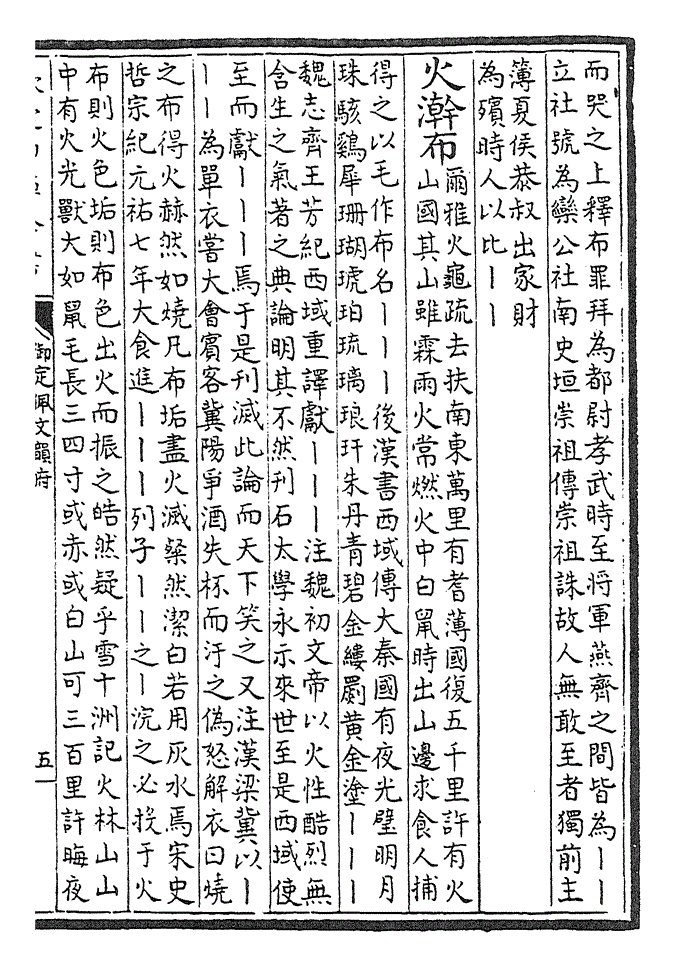 而哭之上釋布罪拜為都尉孝武時至将軍燕齊之間皆為丨丨
立社號為欒公社南史垣崇祖傳崇祖誅故人無敢至者獨前主
簿夏侯恭叔出家財
為殯時人以比丨丨
火澣布
爾雅火龜疏去扶南東萬里有耆薄國復五千里許有火
山國其山雖霖雨火常燃火中白鼠時出山邊求食人捕
得之以毛作布名丨丨丨後漢書西域傳大秦國有夜光璧明月
珠駭鷄犀珊瑚琥珀琉璃琅玕朱丹青碧金縷罽黄金塗丨丨丨
魏志齊王芳紀西域重譯獻丨丨丨注魏初文帝以火性酷烈無
含生之氣著之典論明其不然刋石太學永示來世至是西域使
至而獻丨丨丨焉于是刋滅此論而天下笑之又注漢梁冀以丨
丨丨為單衣嘗大會賓客冀陽爭酒失杯而汙之偽怒解衣曰燒
之布得火赫然如燒凡布垢盡火滅粲然潔白若用灰水焉宋史
哲宗紀元祐七年大食進丨丨丨列子丨丨之丨浣之必投于火
布則火色垢則布色出火而振之皓然疑乎雪十洲記火林山山
中有火光獸大如鼠毛長三四寸或赤或白山可三百里許晦夜
御定佩文韻府
五